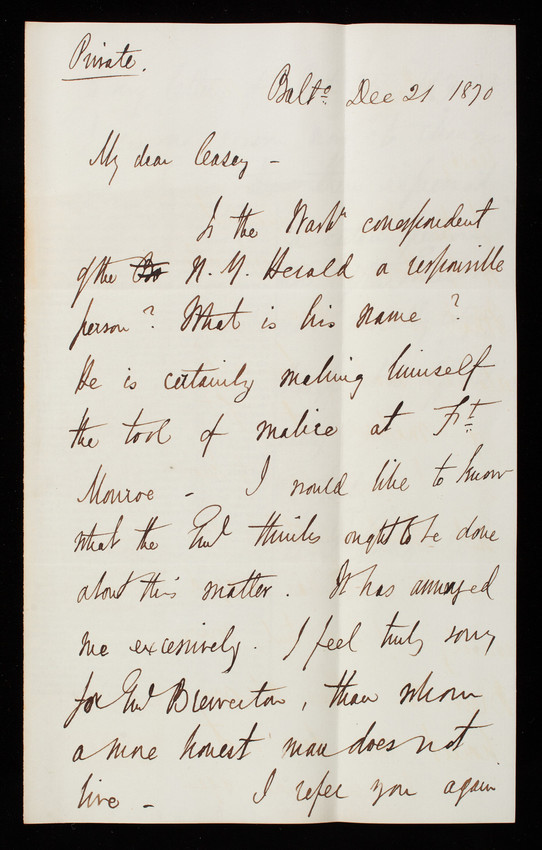 Private.
Balto Dec 21 1870
My dear Casey -
Is the Washn correspondent
of the N. Y. Herald a responsible
person? What is his name?
He is certainly making himself
the tool of malice at Ft
Monroe - I would like to know
what the Genl thinks ought to be done
about this matter. It has annoyed
me excessively. I feel truly sorry
for Genl Brewerton, than whom
a more honest man does not
live - I refer you again